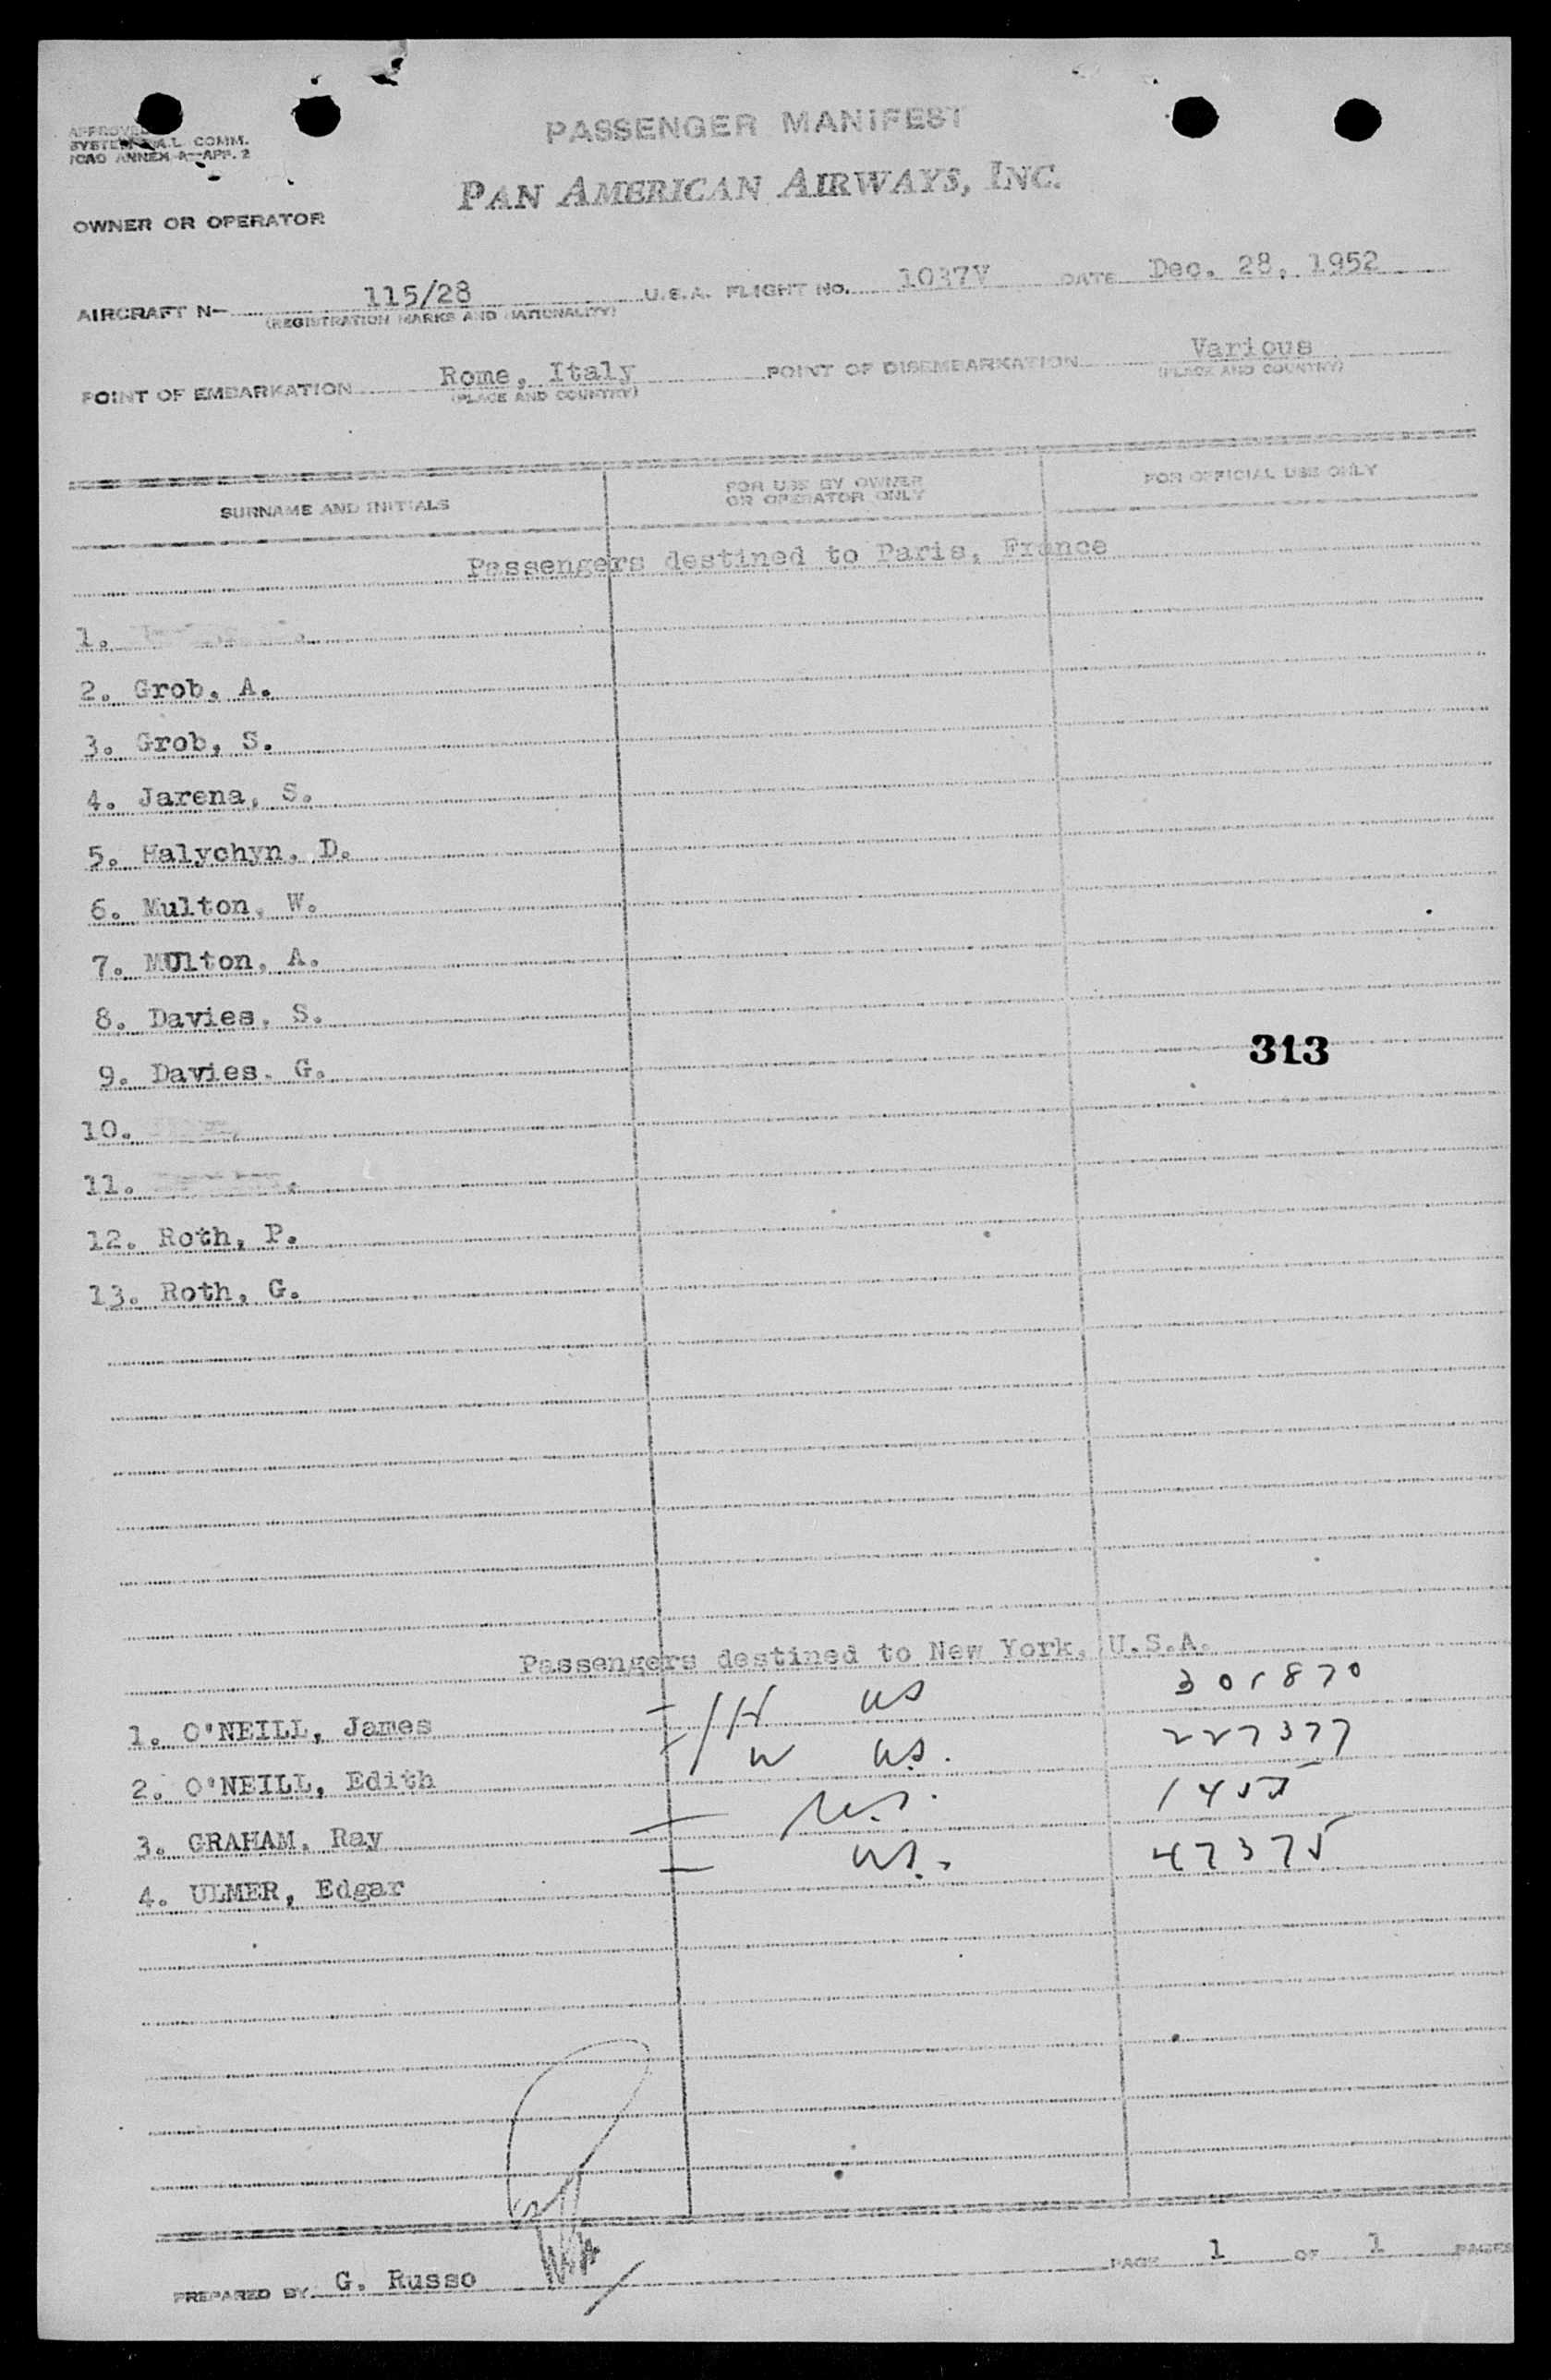 APPROVED
SYSTEM A.L. COMM.
ICAO ANNEX 9—APP. 2
PASSENGER MANIFEST
PAN AMERICAN AIRWAYS, INC.
OWNER OR OPERATOR
AIRCRAFT N— 115/28 U.S.A. FLIGHT NO. 1037V DATE Dec. 28, 1952
(REGISTRATION MARKS AND NATIONALITY)
POINT OF EMBARKATION Rome, Italy POINT OF DISEMBARKATION Various
(PLACE AND COUNTRY) (PLACE AND COUNTRY)
SURNAME AND INITIALS FOR USE BY OWNER OR OPERATOR ONLY FOR OFFICIAL USE ONLY
Passengers destined to Paris, France
1.
2. Grob, A.
3. Grob, S.
4. Jarena, S.
5. Halychyn, D.
6. Multon, W.
7. MUlton, A.
8. Davies, S.
9. Davies. G.
313
10.
11.
12. Roth, P.
13. Roth, G.
Passengers destined to New York, U.S.A.
1. O'NEILL, James H US 301870
2. O'NEILL, Edith W US. 227377
3. GRAHAM, Ray U.S. 1455
4. ULMER, Edgar US. 47375
PREPARED BY G. Russo PAGE 1 OF 1 PAGES